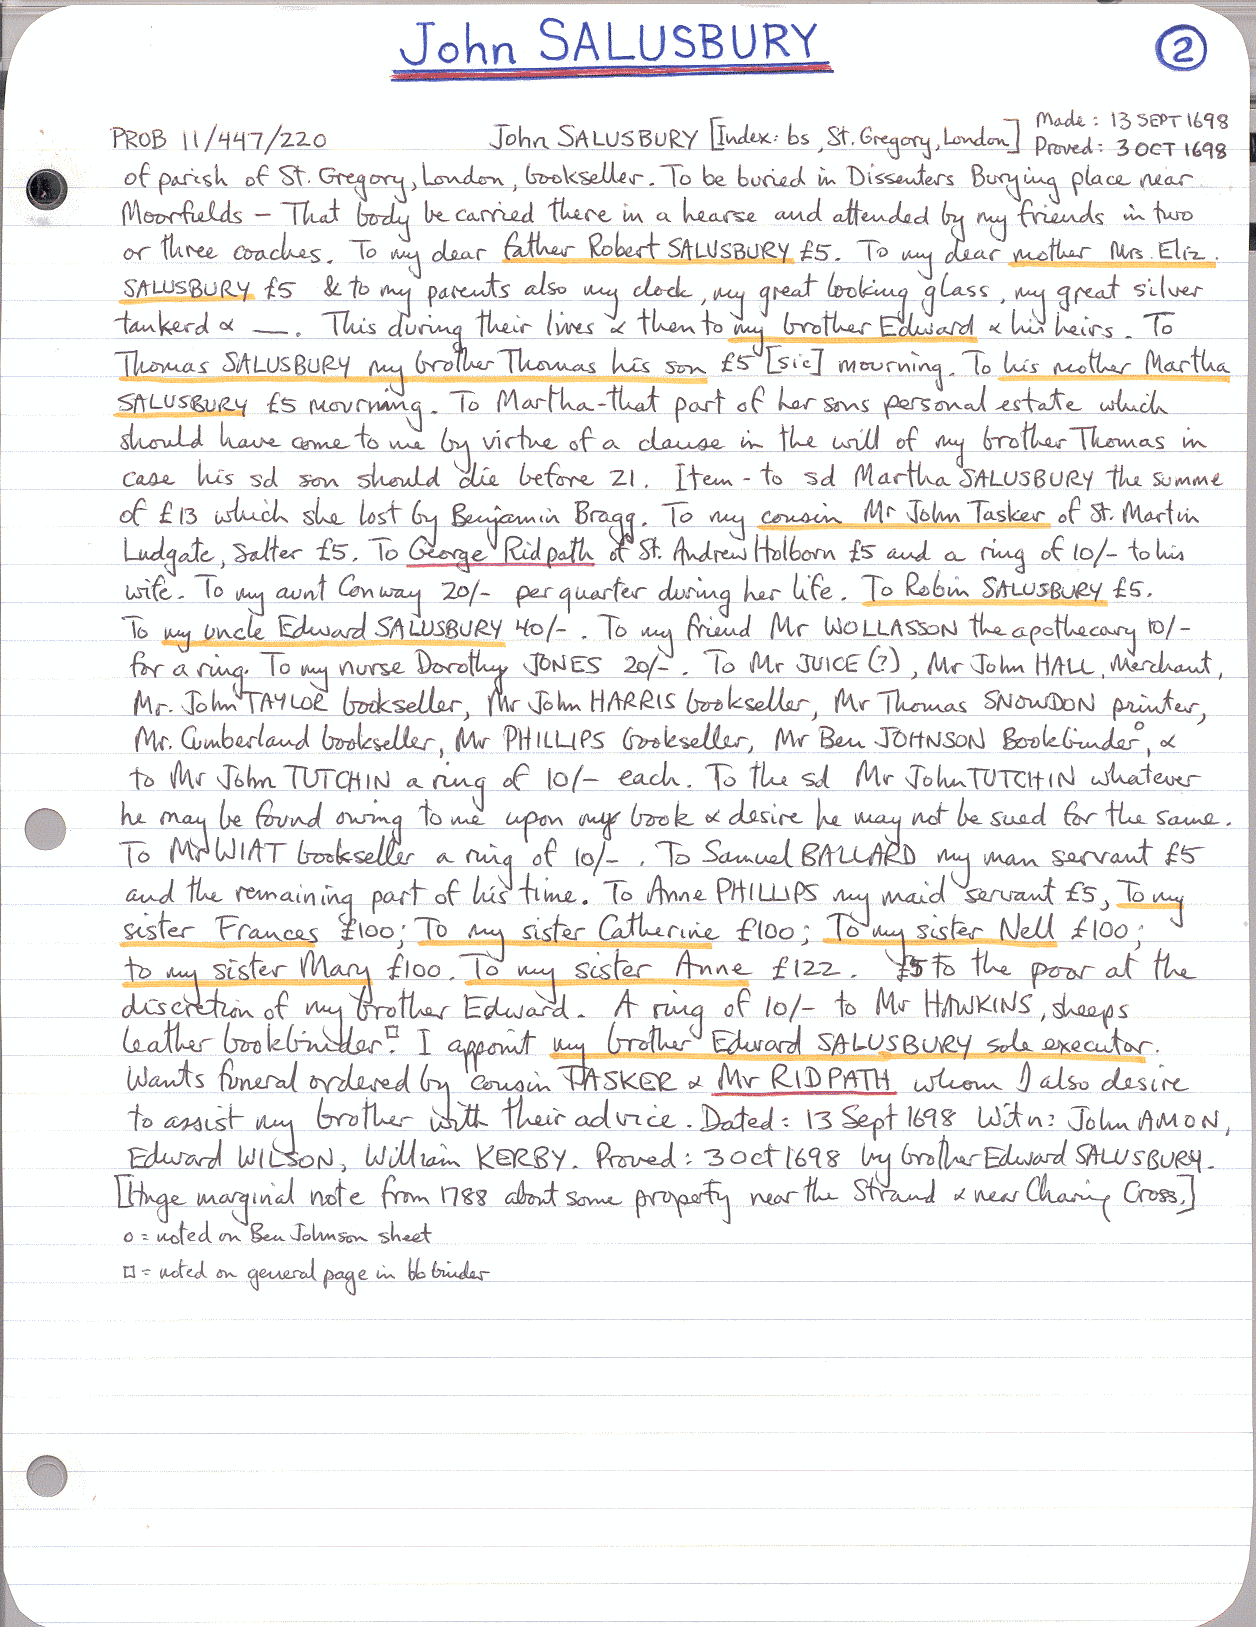 John SALUSBURY
2
PROB 11/447/220 John SALUSBURY [Index: bs, St. Gregory, London] Made: 13 SEPT 1698
Proved: 3 OCT 1698
of parish of St. Gregory, London, bookseller. To be buried in Dissenters Burying place near
Moorfields – That body be carried there in a hearse and attended by my friends in two
or three coaches. To my dear father Robert SALUSBURY £5. To my dear mother Mrs. Eliz.
SALUSBURY £5 & to my parents also my clock, my great looking glass, my great silver
tankerd & —. This during their lives & then to my brother Edward & his heirs. To
Thomas SALUSBURY my brother Thomas his son £5 [sic] mourning. To his mother Martha
SALUSBURY £5 mourning. To Martha-that part of her sons personal estate which
should have come to me by virtue of a clause in the will of my brother Thomas in
case his sd son should die before 21. Item - to sd Martha SALUSBURY the summe
of £13 which she lost by Benjamin Bragg. To my cousin Mr John Tasker of St. Martin
Ludgate, Salter £5. To George Ridpath of St. Andrew Holborn £5 and a ring of 10/- to his
wife. To my aunt Conway 20/- per quarter during her life. To Robin SALUSBURY £5.
To my uncle Edward SALUSBURY 40/-. To my friend Mr WOLLASSON the apothecary 10/-
for a ring. To my nurse Dorothy JONES 20/-. To Mr JUICE (?), Mr John HALL, Merchant,
Mr. John TAYLOR bookseller, Mr John HARRIS bookseller, Mr Thomas SNOWDON printer,
Mr. Cumberland bookseller, Mr PHILLIPS bookseller, Mr Ben JOHNSON Bookbinder°, &
to Mr John TUTCHIN a ring of 10/- each. To the sd Mr John TUTCHIN whatever
he may be found owing to me upon my book & desire he may not be sued for the same.
To Mr WIAT bookseller a ring of 10/-. To Samuel BALLARD my man servant £5
and the remaining part of his time. To Anne PHILLIPS my maid servant £5, To my
sister Frances £100; To my sister Catherine £100; To my sister Nell £100;
to my sister Mary £100. To my sister Anne £122. £5 to the poor at the
discretion of my brother Edward. A ring of 10/- to Mr HAWKINS, sheeps
leather bookbinder□. I appoint my brother Edward SALUSBURY sole executor.
Wants funeral ordered by cousin TASKER & Mr RIDPATH whom I also desire
to assist my brother with their advice. Dated: 13 Sept 1698 Witn: John AMON,
Edward WILSON, William KERBY. Proved: 3 Oct 1698 by brother Edward SALUSBURY.
[Huge marginal note from 1788 about some property near the Strand & near Charing Cross.]
o = noted on Ben Johnson sheet
□ = noted on general page in bb binder